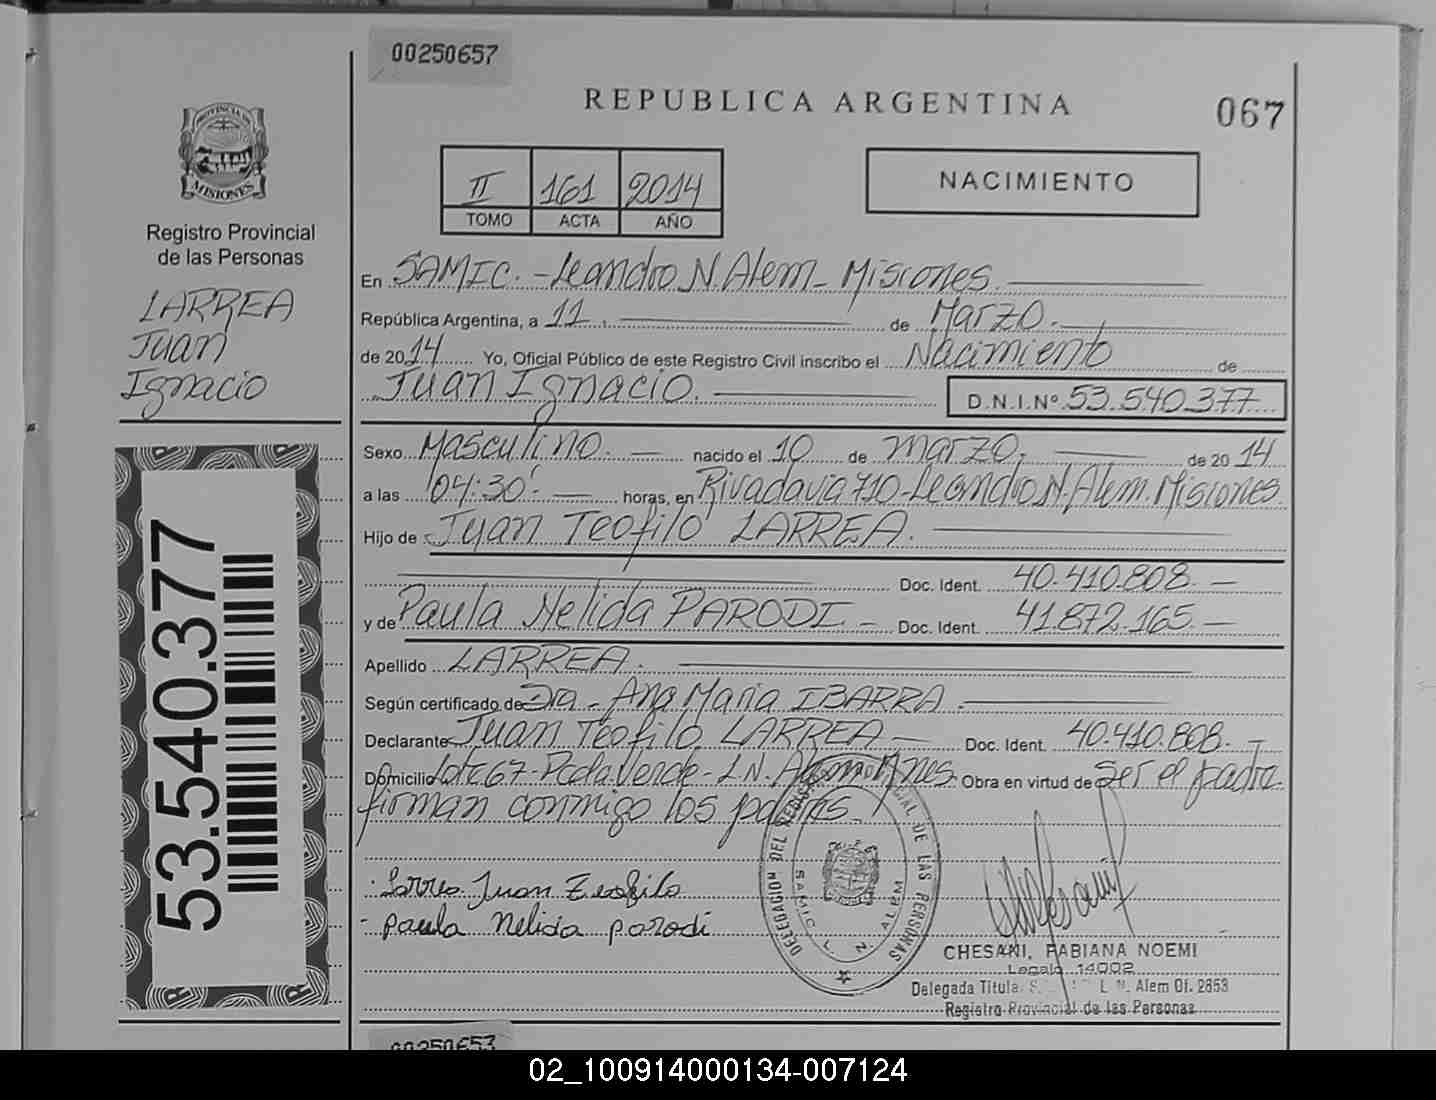 00250657
REPUBLICA ARGENTINA
067
PROVINCIA DE
MISIONES
Registro Provincial
de las Personas
LARREA
Juan
Ignacio
II 161 2014
TOMO ACTA AÑO
NACIMIENTO
En SAMIC. - Leandro N. Alem - Misiones
República Argentina, a 11 de Marzo.
de 2014 Yo, Oficial Público de este Registro Civil inscribo el Nacimiento de
Juan Ignacio. D.N.I.Nº 53.540.377
Sexo Masculino. nacido el 10 de Marzo. de 2014
a las 04:30 horas, en Rivadavia 710 - Leandro N. Alem. Misiones.
Hijo de Juan Teofilo LARREA.
Doc. Ident. 40.410.808. —
y de Paula Nelida PARODI — Doc. Ident. 41.872.165. —
Apellido LARREA.
Según certificado de Dra. Ana Maria IBARRA.
Declarante Juan Teofilo LARREA — Doc. Ident. 40.410.808. —
Domicilio Lote 67 - Pcda Verde - L.N. Alem Mnes. Obra en virtud de ser el padre.
firman conmigo los padres.
Larrea Juan Teofilo
- paula Nelida parodi
DELEGACION DEL REGISTRO PROVINCIAL DE LAS PERSONAS
SAMIC L. N. ALEM
CHESANI, FABIANA NOEMI
Legajo 14002
Delegada Titula L. N. Alem Of. 2853
Registro Provincial de las Personas
53.540.377
00250653
02_100914000134-007124